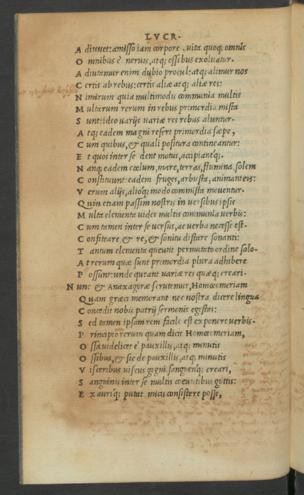 LVCR.
Adiuuet: amisso iam corpore, uita quoq; omnis
Omnibus è neruis, atq; ossibus exoluatur.
Adiutamur enim dubio procul: atq; alimur nos
Certis ab rebus: certis aliæ atq; aliæ res:
Nimirum quia multimodis communia multis
Multarum rerum in rebus primordia mista
Sunt: ideo uarijs uariæ res rebus aluntur.
Atq; eadem magni refert primordia sæpe,
Cum quibus, et quali positura contineantur:
Et quos inter se dent motus, accipiantq;.
Nanq; eadem cœlum, mare, terras, flumina, solem
Constituunt: eadem fruges, arbusta, animanteis:
Verum alijs, alioq; modo commista mouentur.
Quin etiam passim nostris in uersibus ipsis
Multa elementa uides multis communia uerbis:
Cum tamen inter se uersus, ac uerba necesse est
Confiteare et re, et sonitu distare sonanti:
Tantum elementa queunt permutato ordine solo.
At rerum quæ sunt primordia plura adhibere
Possunt: unde queant uariæ res quæq; creari.
Nunc et Anaxagoræ scrutemur, Homœomeriam
Quam græci memorant: nec nostra dicere lingua
Concedit nobis patrij sermonis egestas:
Sed tamen ipsam rem facile est exponere uerbis.
Principio rerum quam dicit Homœomeriam,
Ossa uidelicet è pauxillis, atq; minutis
Ossibus, et sic de pauxillis, atq; minutis
Visceribus uiscus gigni: sanguenq; creari,
Sanguinis inter se multis coeuntibus guttis:
Ex auriq; putat micis consistere posse,